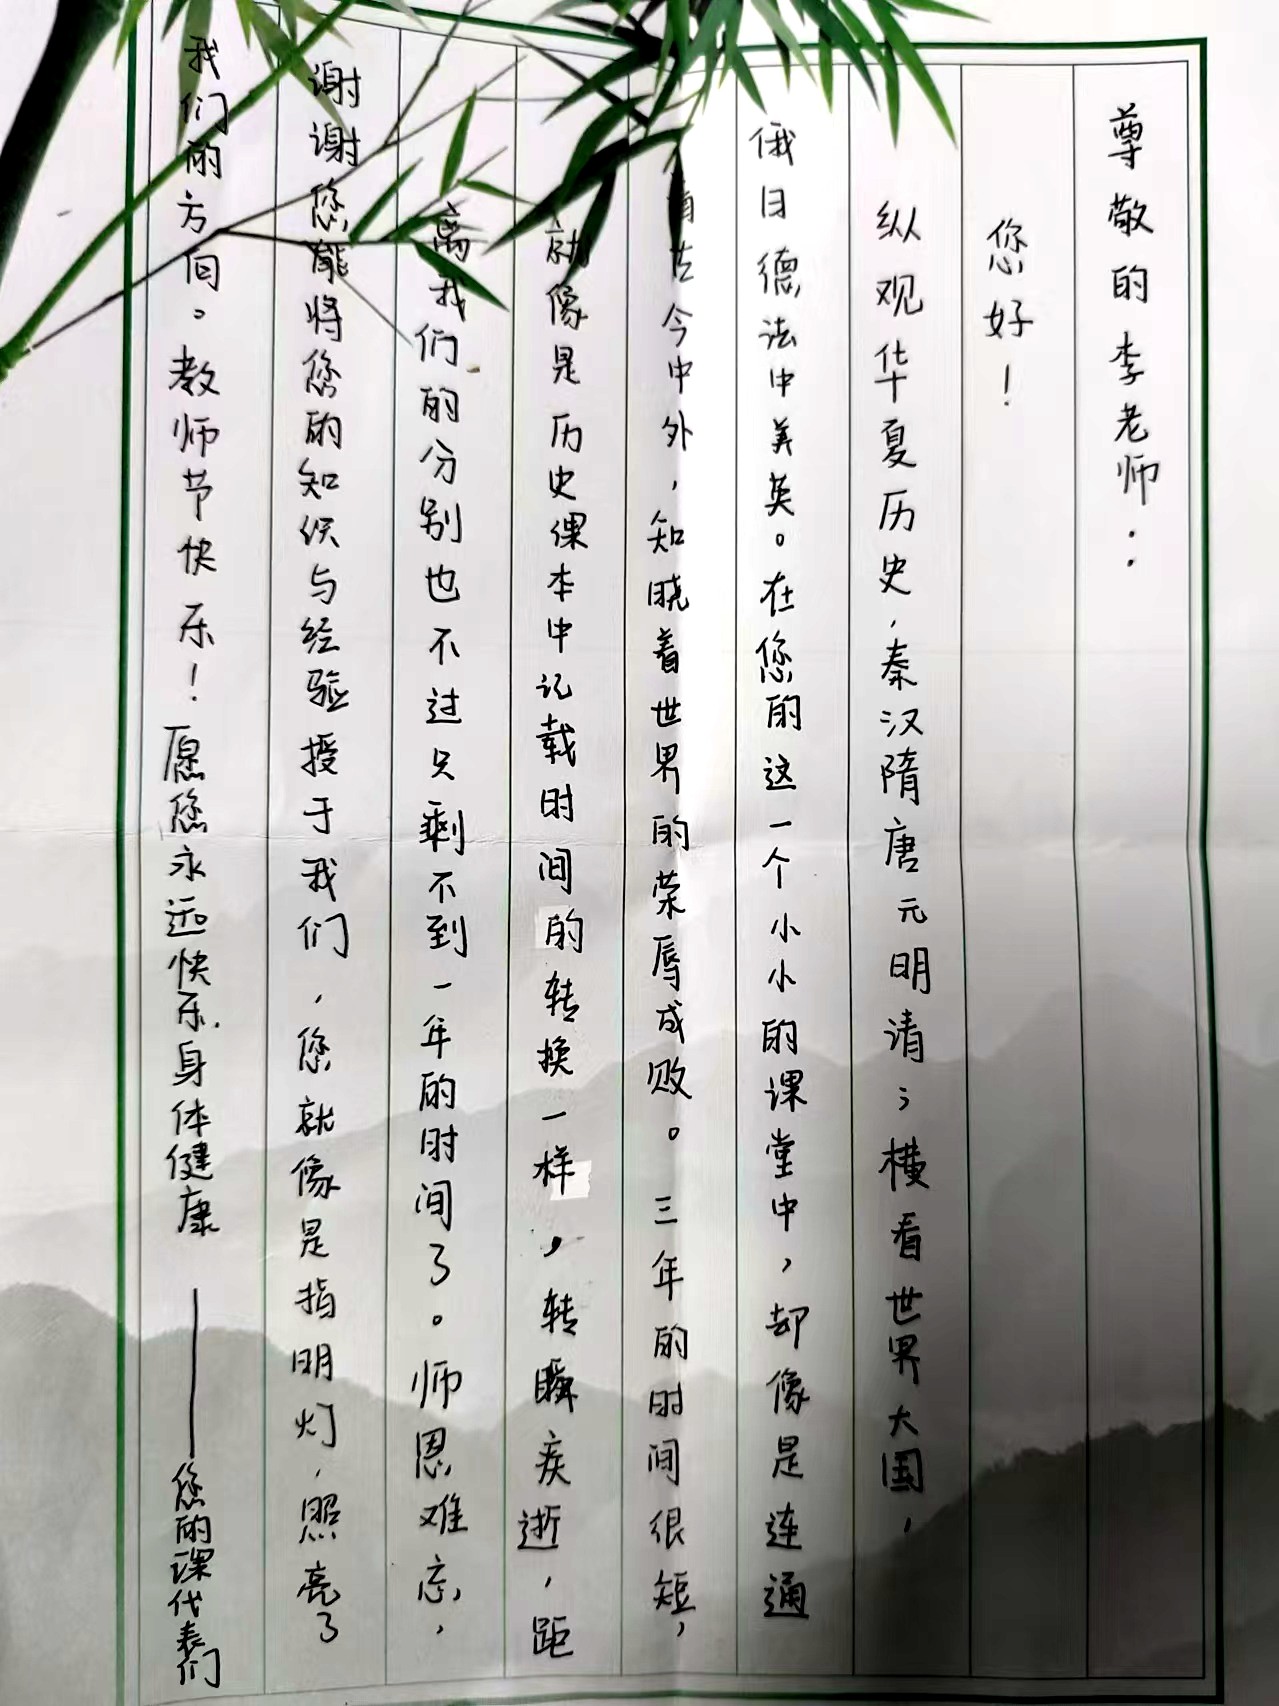 尊敬的李老师：
您好！
纵观华夏历史，秦汉隋唐元明清；横看世界大国，
俄日德法中美英。在您的这一个小小的课堂中，却像是连通
着古今中外，知晓着世界的荣辱成败。三年的时间很短，
就像是历史课本中记载时间的转换一样，转瞬疾逝，距
离我们的分别也不过只剩不到一年的时间了。师恩难忘，
谢谢您能将您的知识与经验授于我们，您就像是指明灯，照亮了
我们的方向。教师节快乐！愿您永远快乐，身体健康 ——您的课代表们